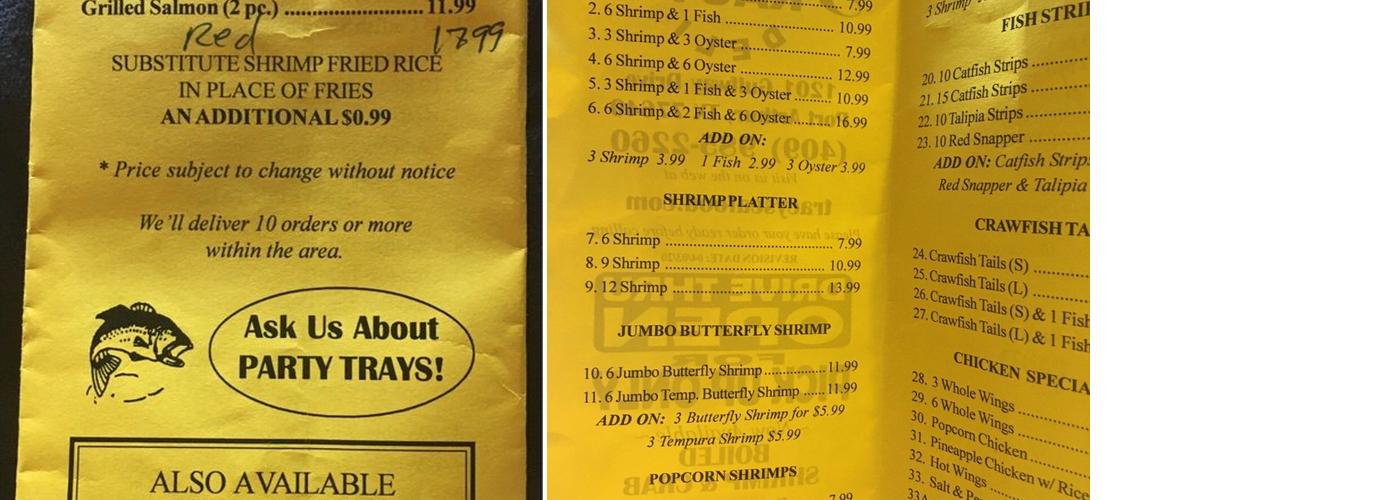 Grilled Salmon (2 pc.) .......................... 11.99
Red 1799
SUBSTITUTE SHRIMP FRIED RICE
IN PLACE OF FRIES
AN ADDITIONAL $0.99
* Price subject to change without notice
We'll deliver 10 orders or more
within the area.
Ask Us About
PARTY TRAYS!
ALSO AVAILABLE
7.99
2. 6 Shrimp & 1 Fish ........................ 10.99
3. 3 Shrimp & 3 Oyster ........................ 7.99
4. 6 Shrimp & 6 Oyster ...................... 12.99
5. 3 Shrimp & 1 Fish & 3 Oyster ........ 10.99
6. 6 Shrimp & 2 Fish & 6 Oyster ......... 16.99
ADD ON:
3 Shrimp 3.99 1 Fish 2.99 3 Oyster 3.99
SHRIMP PLATTER
7. 6 Shrimp ....................................... 7.99
8. 9 Shrimp ..................................... 10.99
9. 12 Shrimp ................................... 13.99
JUMBO BUTTERFLY SHRIMP
10. 6 Jumbo Butterfly Shrimp ............... 11.99
11. 6 Jumbo Temp. Butterfly Shrimp ...... 11.99
ADD ON: 3 Butterfly Shrimp for $5.99
3 Tempura Shrimp $5.99
POPCORN SHRIMPS
7.99
3 Shrimp
FISH STRI
20. 10 Catfish Strips
21. 15 Catfish Strips
22. 10 Talipia Strips
23. 10 Red Snapper
ADD ON: Catfish Strips
Red Snapper & Talipia
CRAWFISH TA
24. Crawfish Tails (S)
25. Crawfish Tails (L)
26. Crawfish Tails (S) & 1 Fish
27. Crawfish Tails (L) & 1 Fish
CHICKEN SPECIA
28. 3 Whole Wings
29. 6 Whole Wings
30. Popcorn Chicken
31. Pineapple Chicken w/ Rice
32. Hot Wings
33. Salt & Pe
33A